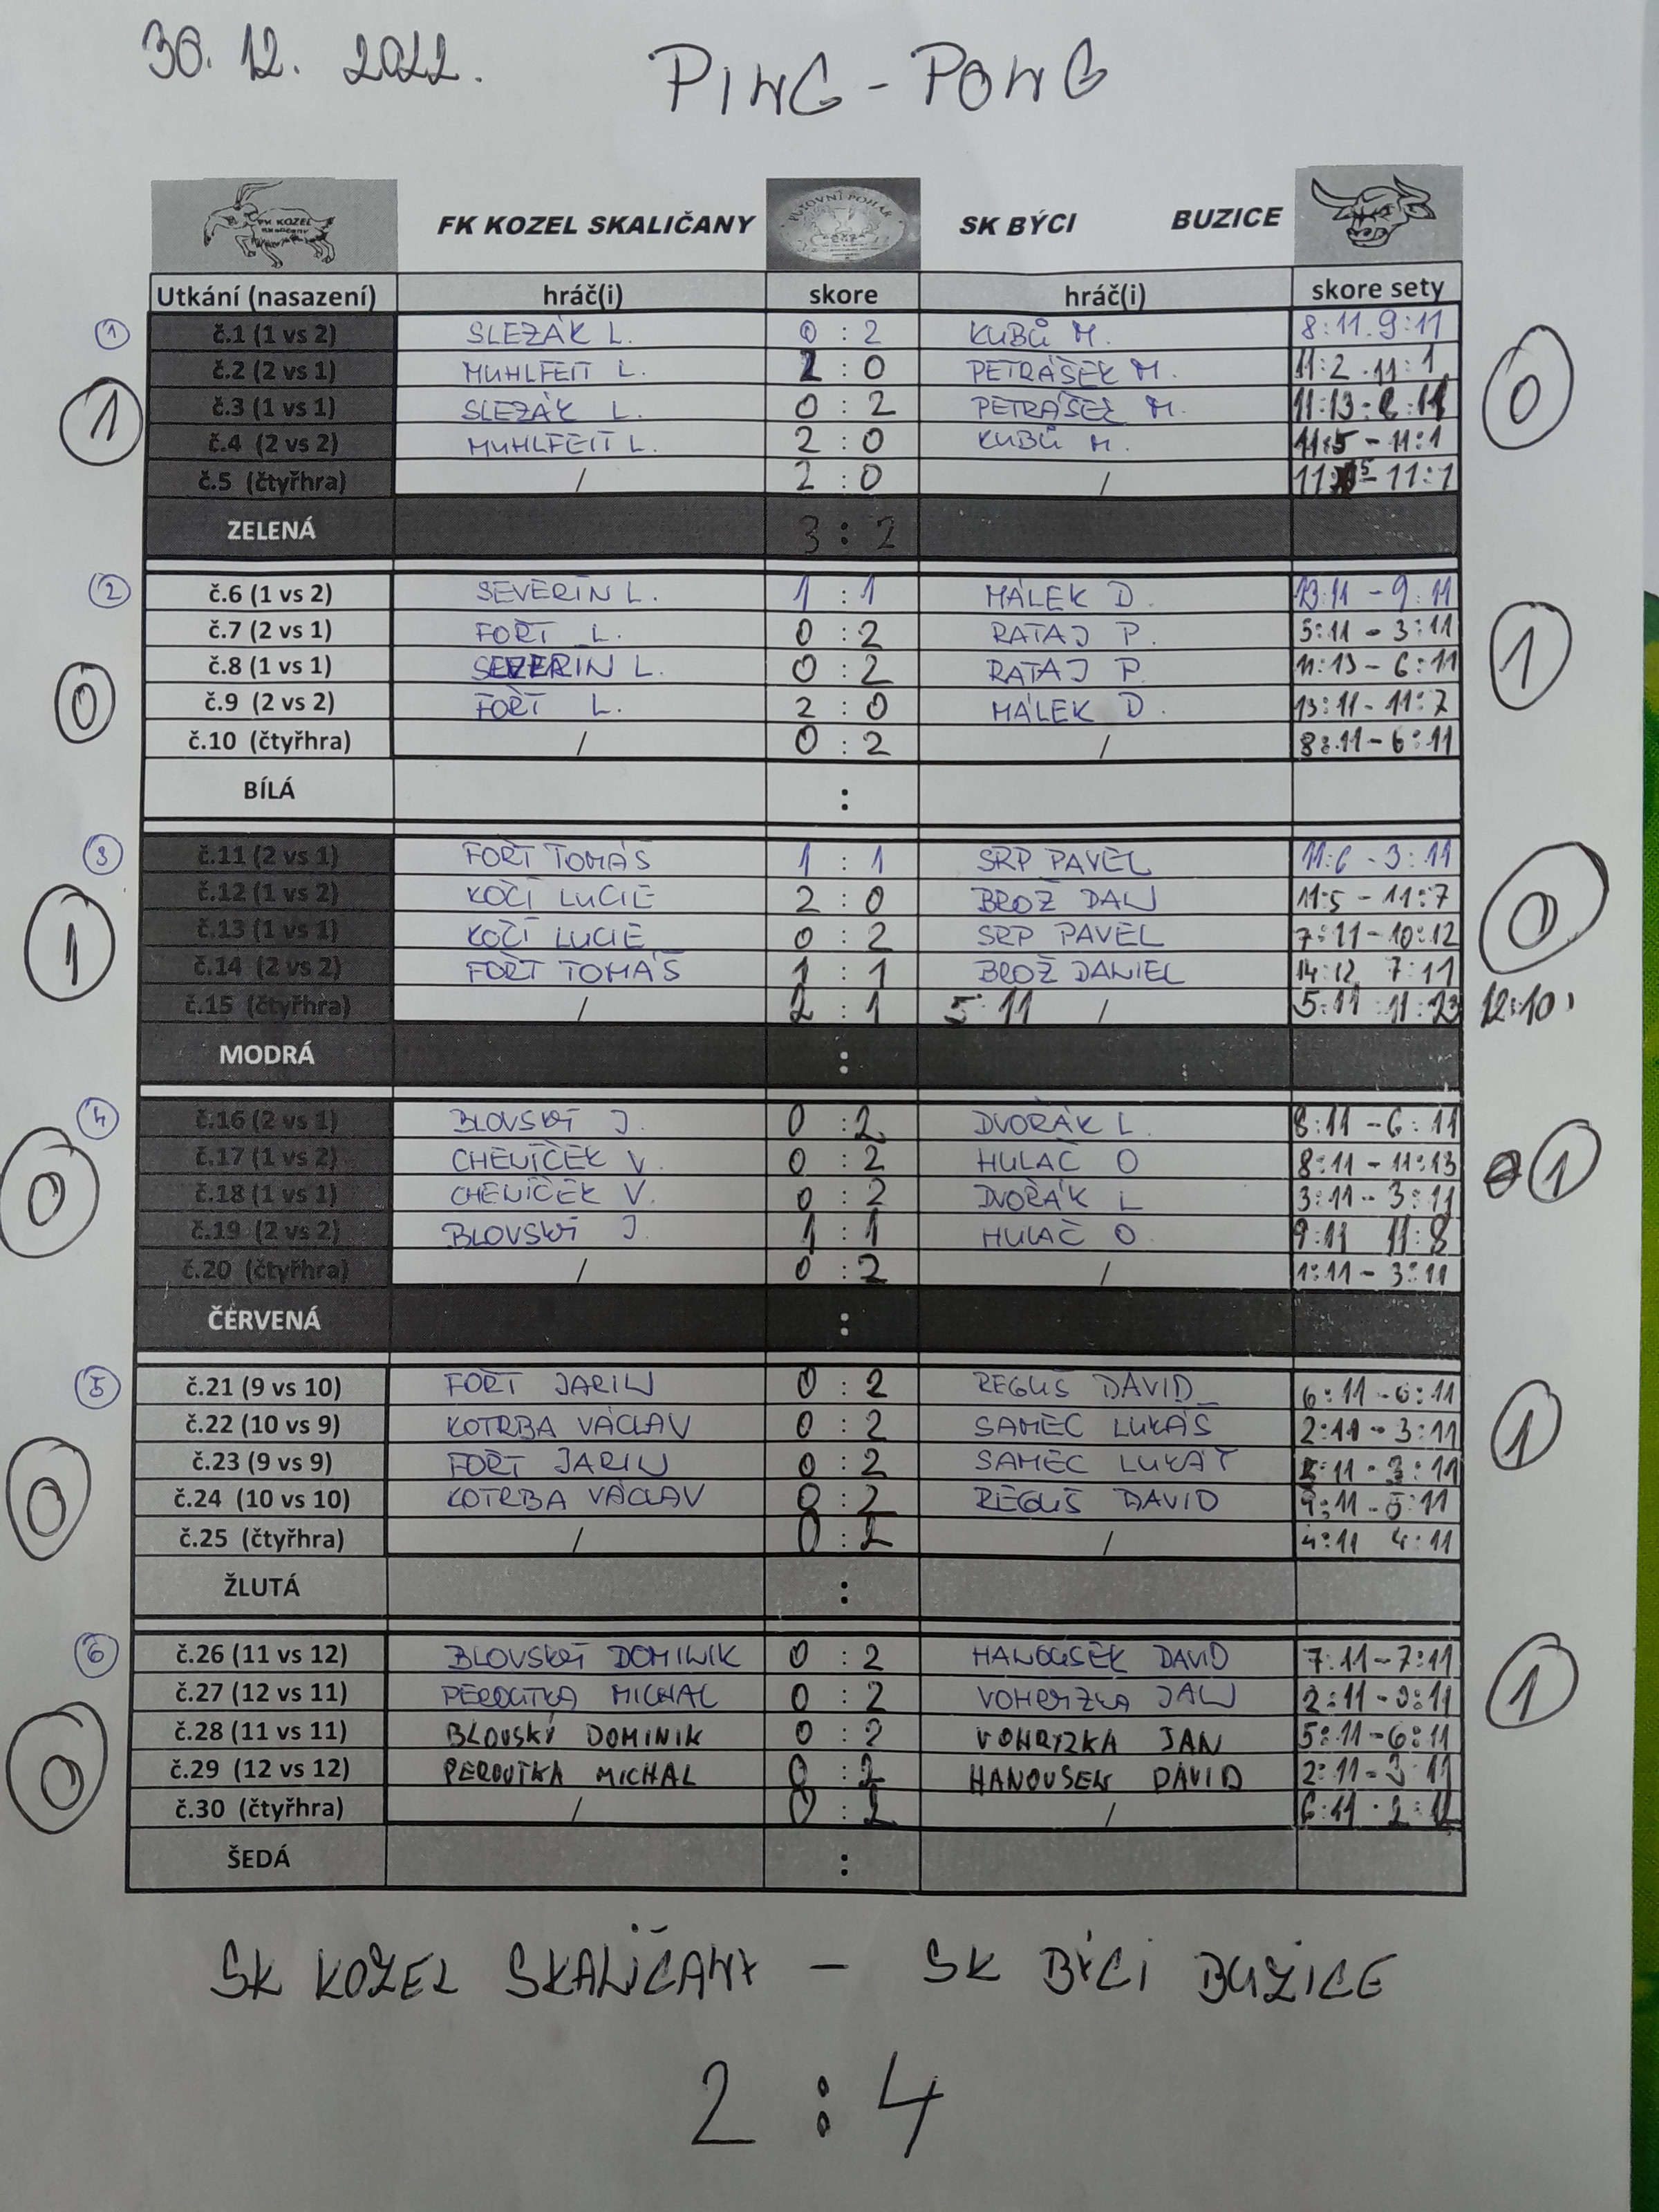 30. 12. 2022. PING-PONG
FK KOZEL SKALIČANY PUTOVNÍ POHÁR SK BÝCI BUZICE
Utkání (nasazení) hráč(i) skore hráč(i) skore sety
1 č.1 (1 vs 2) SLEZÁK L. 0 : 2 KUBŮ M. 8:11. 9:11
č.2 (2 vs 1) MUHLFEIT L. 2 : 0 PETRÁŠEK M. 11:2 . 11:1
1 č.3 (1 vs 1) SLEZÁK L. 0 : 2 PETRÁŠEK M. 11:13 - 11 0
č.4 (2 vs 2) MUHLFEIT L. 2 : 0 KUBŮ M. 11:5 - 11:1
č.5 (čtyřhra) / 2 : 0 / 11:5 - 11:1
ZELENÁ 3 : 2
2 č.6 (1 vs 2) SEVERIN L. 1 : 1 MÁLEK D. 13:11 - 9:11
č.7 (2 vs 1) FOŘT L. 0 : 2 RATAJ P. 5:11 - 3:11
č.8 (1 vs 1) SEVERIN L. 0 : 2 RATAJ P. 11:13 - 6:11 1
0 č.9 (2 vs 2) FOŘT L. 2 : 0 MÁLEK D. 13:11 - 11:7
č.10 (čtyřhra) / 0 : 2 / 8:11 - 6:11
BÍLÁ :
3 č.11 (2 vs 1) FOŘT TOMÁŠ 1 : 1 SRP PAVEL 11:6 - 3:11
č.12 (1 vs 2) KOČÍ LUCIE 2 : 0 BROŽ DAN 11:5 - 11:7
1 č.13 (1 vs 1) KOČÍ LUCIE 0 : 2 SRP PAVEL 7:11 - 10:12 0
č.14 (2 vs 2) FOŘT TOMÁŠ 1 : 1 BROŽ DANIEL 14:12 7:11
č.15 (čtyřhra) / 2 : 1 5:11 / 5:11 12:10
MODRÁ :
4 č.16 (2 vs 1) BLOVSKÝ J. 0 : 2 DVOŘÁK L. 8:11 - 6:11
č.17 (1 vs 2) CHENÍČEK V. 0 : 2 HULAČ O 8:11 - 11:13 1
0 č.18 (1 vs 1) CHENÍČEK V. 0 : 2 DVOŘÁK L 3:11 - 3:11
č.19 (2 vs 2) BLOVSKÝ J. 1 : 1 HULAČ O. 9:11 11:8
č.20 (čtyřhra) / 0 : 2 / 1:11 - 3:11
ČERVENÁ :
5 č.21 (9 vs 10) FOŘT JARIN 0 : 2 REGUŠ DAVID 6:11 - 6:11
č.22 (10 vs 9) KOTRBA VÁCLAV 0 : 2 SAMEC LUKÁŠ 2:11 - 3:11 1
č.23 (9 vs 9) FOŘT JARIN 0 : 2 SAMEC LUKÁŠ :11 - 3:11
0 č.24 (10 vs 10) KOTRBA VÁCLAV 0 : 2 REGUŠ DAVID 9:11 - 5:11
č.25 (čtyřhra) / 0 : 2 / 4:11 4:11
ŽLUTÁ :
6 č.26 (11 vs 12) BLOVSKÝ DOMINIK 0 : 2 HANOUSEK DAVID 7:11 - 7:11
č.27 (12 vs 11) PEROUTKA MICHAL 0 : 2 VOHRYZKA JAN 2:11 - :11 1
č.28 (11 vs 11) BLOVSKÝ DOMINIK 0 : 2 VOHRYZKA JAN 5:11 - 6:11
0 č.29 (12 vs 12) PEROUTKA MICHAL 0 : 2 HANOUSEK DAVID 2:11 - 3:11
č.30 (čtyřhra) / 0 : 2 / 6:11
ŠEDÁ :
SK KOZEL SKALIČANY - SK BÝCI BUZICE
2 : 4